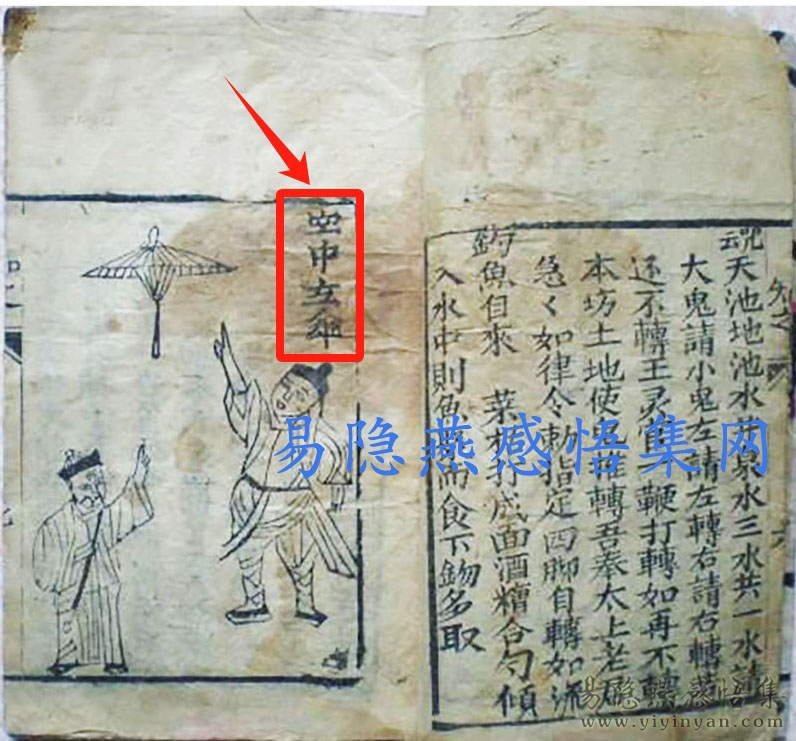 咒云天池地池水井泉水三水共一水請
大鬼請小鬼左請左轉右請右轉若
还不轉王灵官一鞭打轉如再不轉
本坊土地使車推轉吾奉太上老君
急々如律令敕指定四脚自轉如流
釣魚自來 菜籽打成面酒糟合勻傾
入水中則魚而食下鈎多取
空中立傘
易隐燕感悟集网
易隐燕感悟集
www.yiyinyan.com